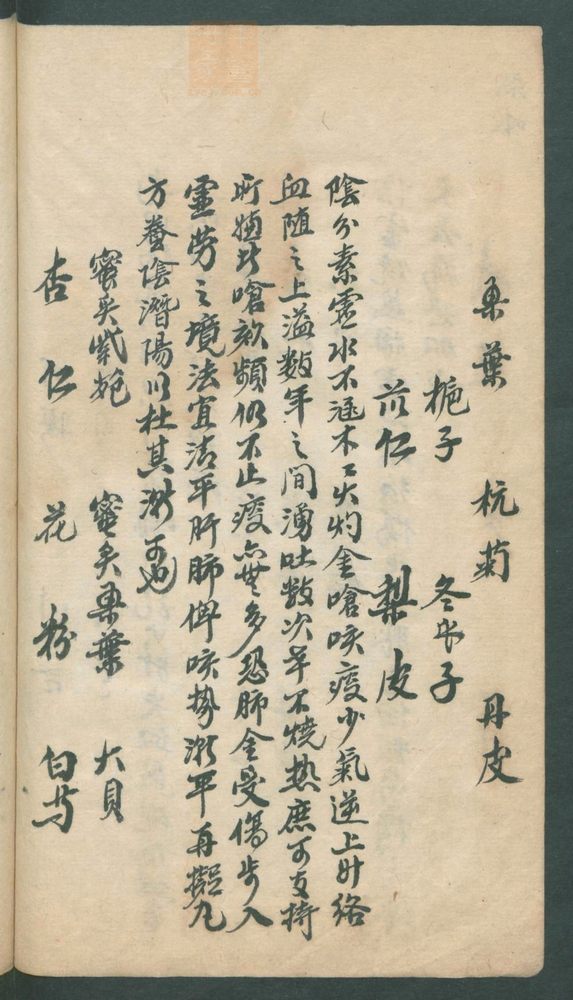 桑葉 杭菊 丹皮
梔子 冬瓜子
苡仁 梨皮
陰分素虛水不涵木木火灼金嗆咳痰少氣逆上升絡
血隨之上溢数年之間湧吐数次幸不燒熱庶可支持
所嫌者嗆欬頻仍不止痰亦無多恐肺金受傷步入
虛勞之境法宜清平肝肺俾咳勢漸平再擬丸
方養陰潛陽以杜其漸可也
蜜炙紫菀 蜜炙桑葉 大貝
杏仁 花粉 白芍